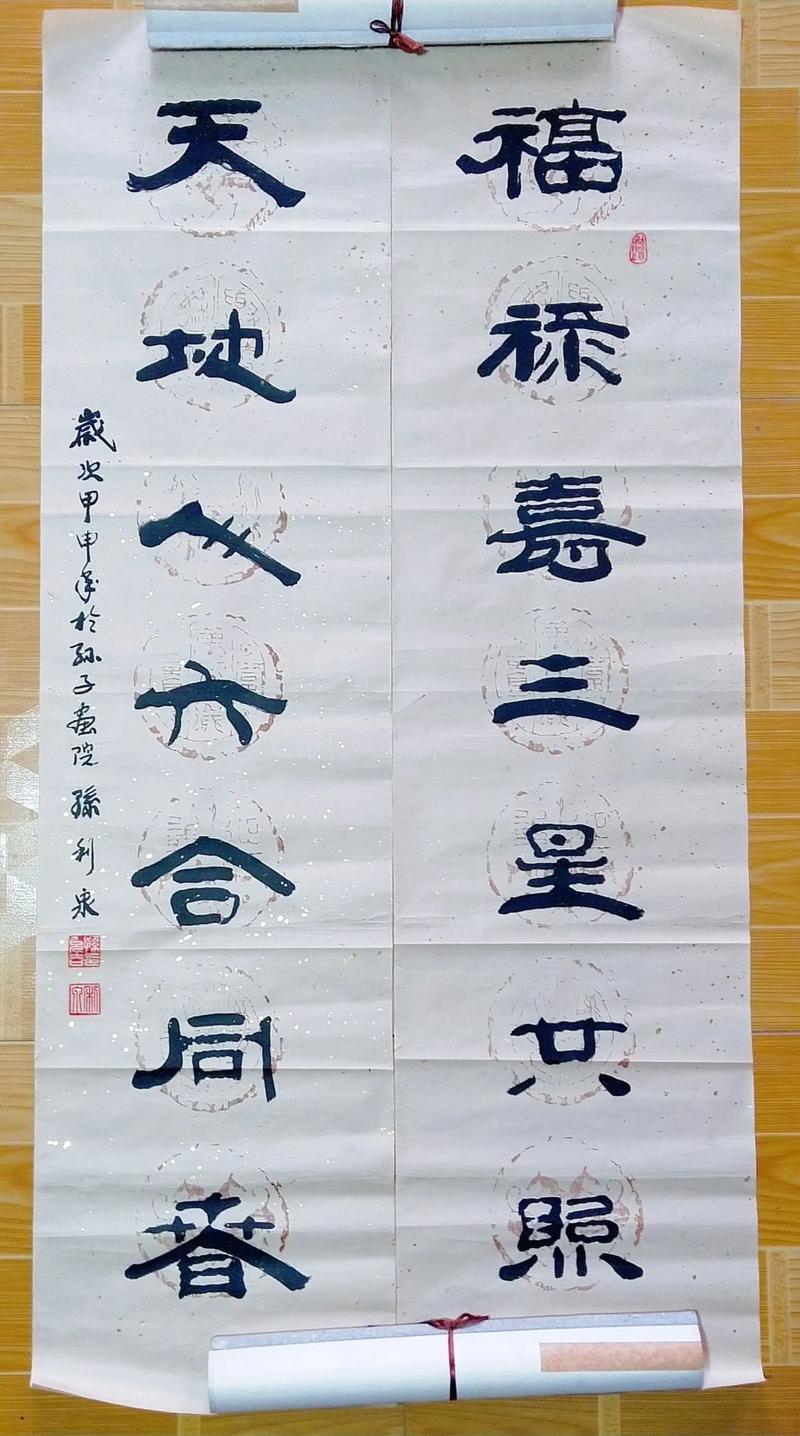 福禄壽三星共照
天地人六合同春
歲次甲申年於孫子畫院 孫利泉